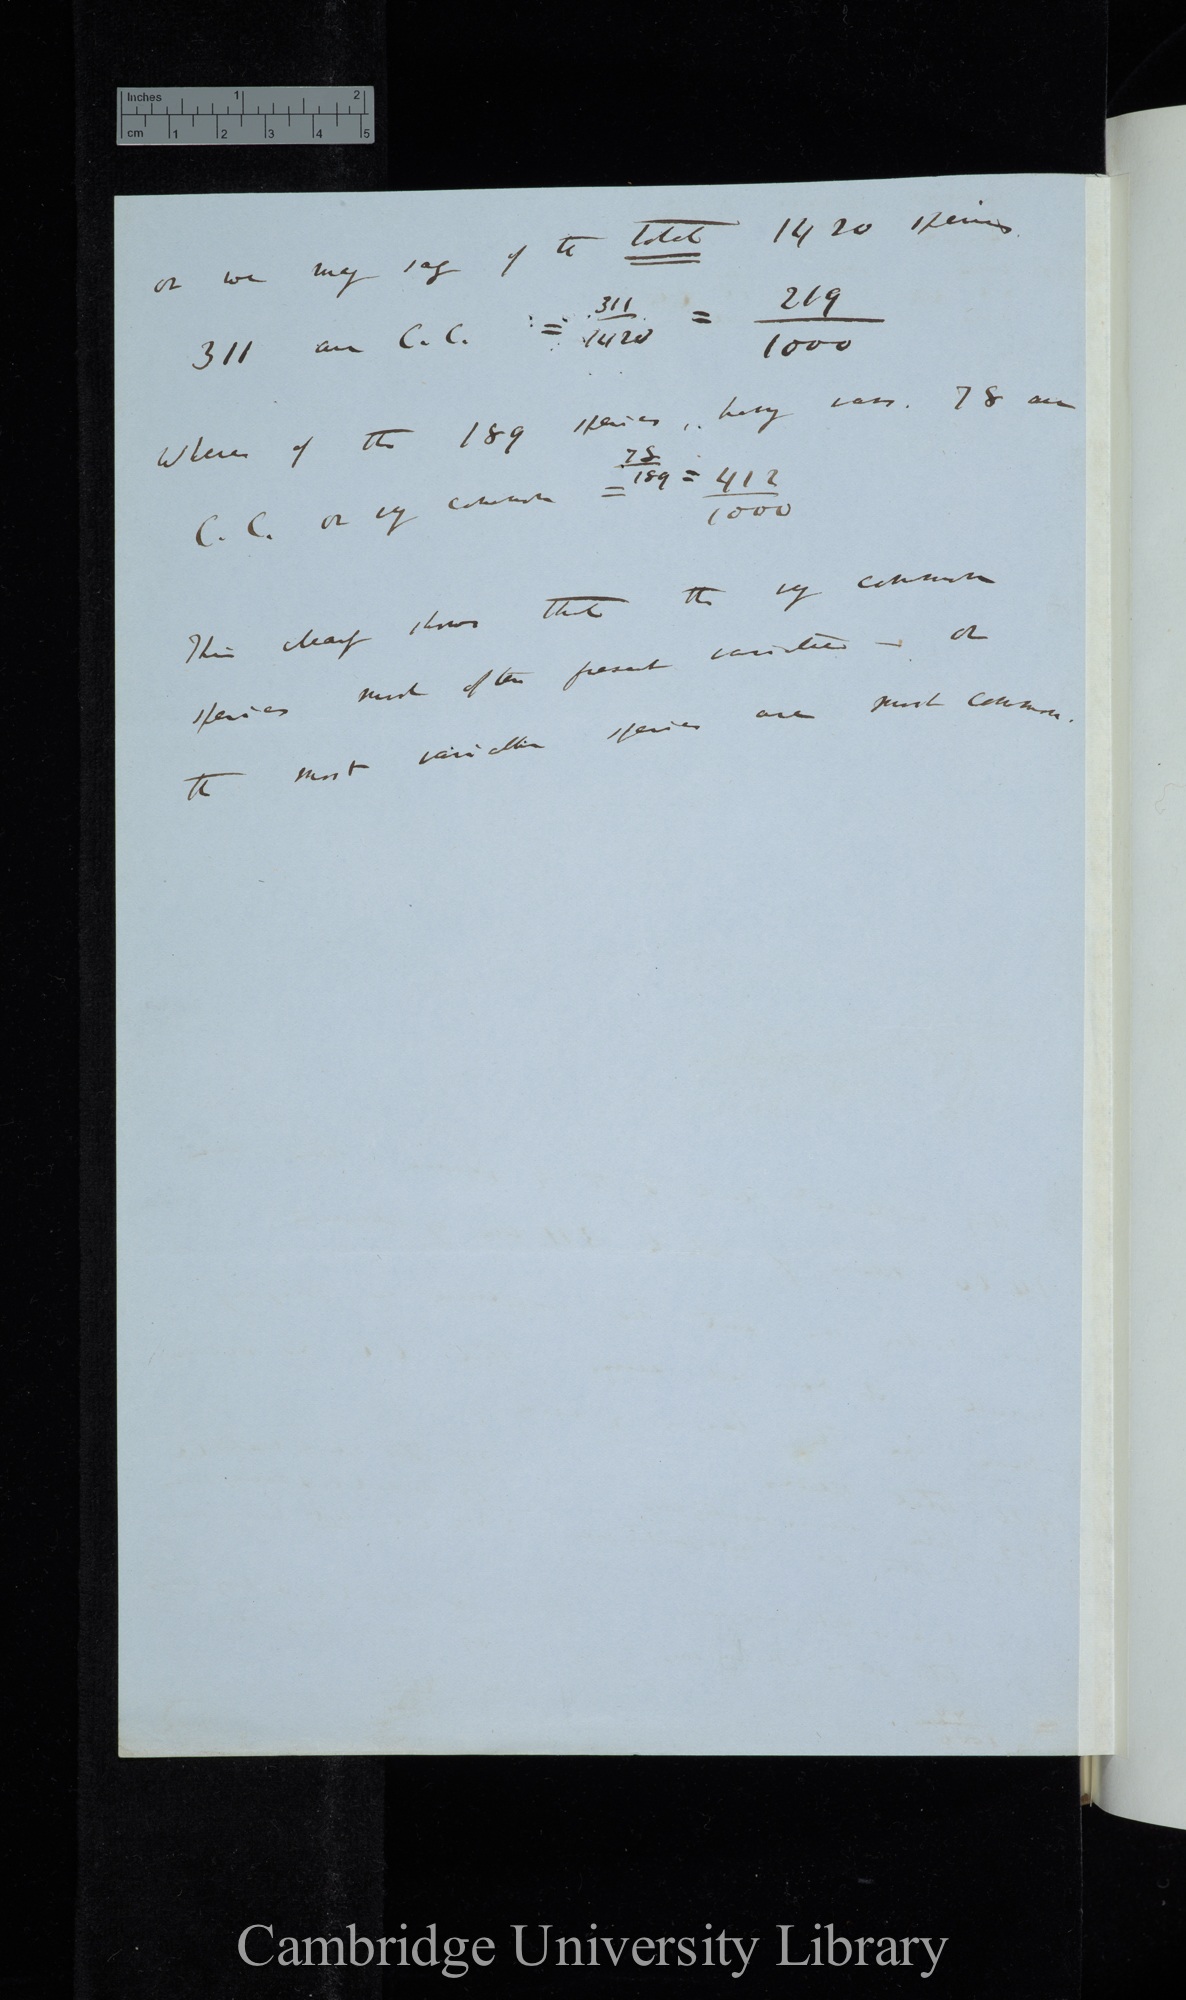 Inches 1 2
cm 1 2 3 4 5
or we may say of the total 1420 species
311 are C.C. = 311/1420 = 219/1000
Whereas of the 189 species, having vars. 78 are
C. C. or vy common = 78/189 = 412/1000
This clearly shows that the vy common
species most often present varieties — or
the most variable species are most common.
Cambridge University Library